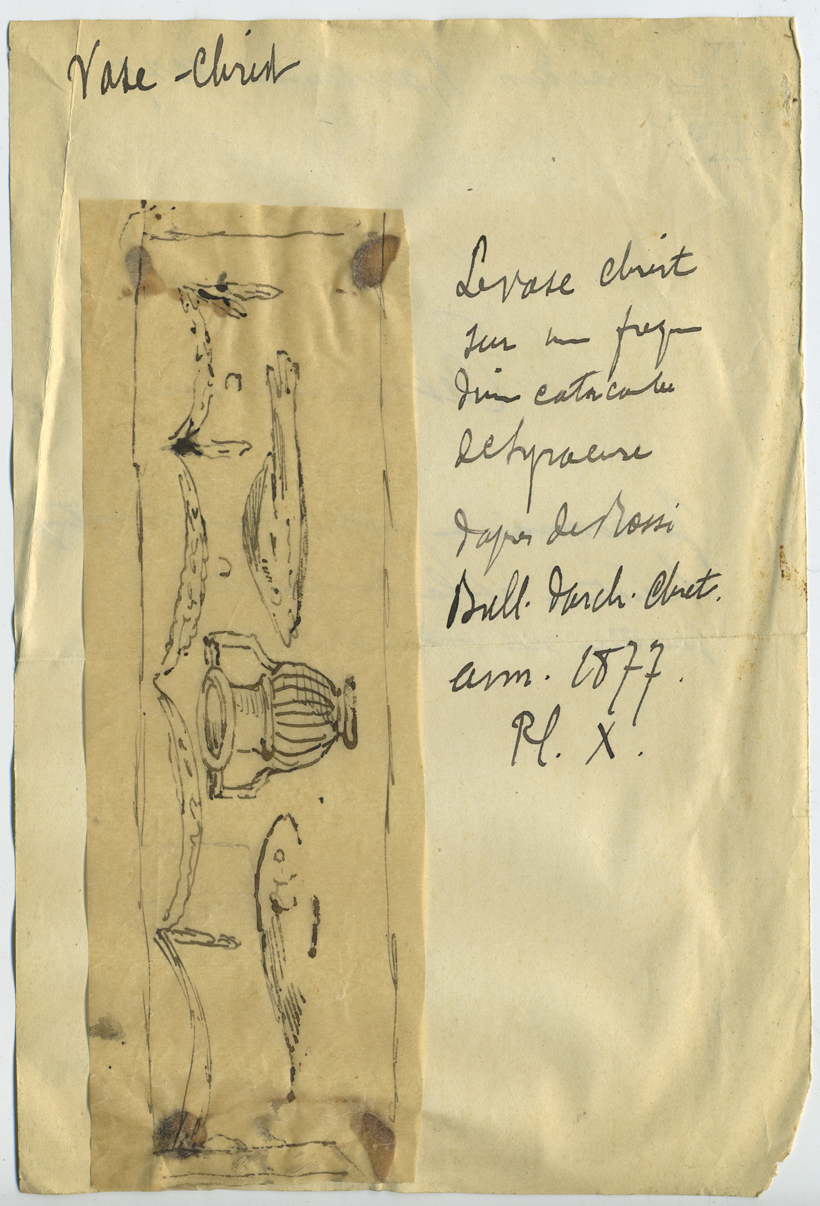 Vase - Christ
Le vase christ
sur un fresque
d'une catacombe
de Syracuse
d'apres de Rossi
Bull. d'arch. Chret.
ann. 1877.
Pl. X.